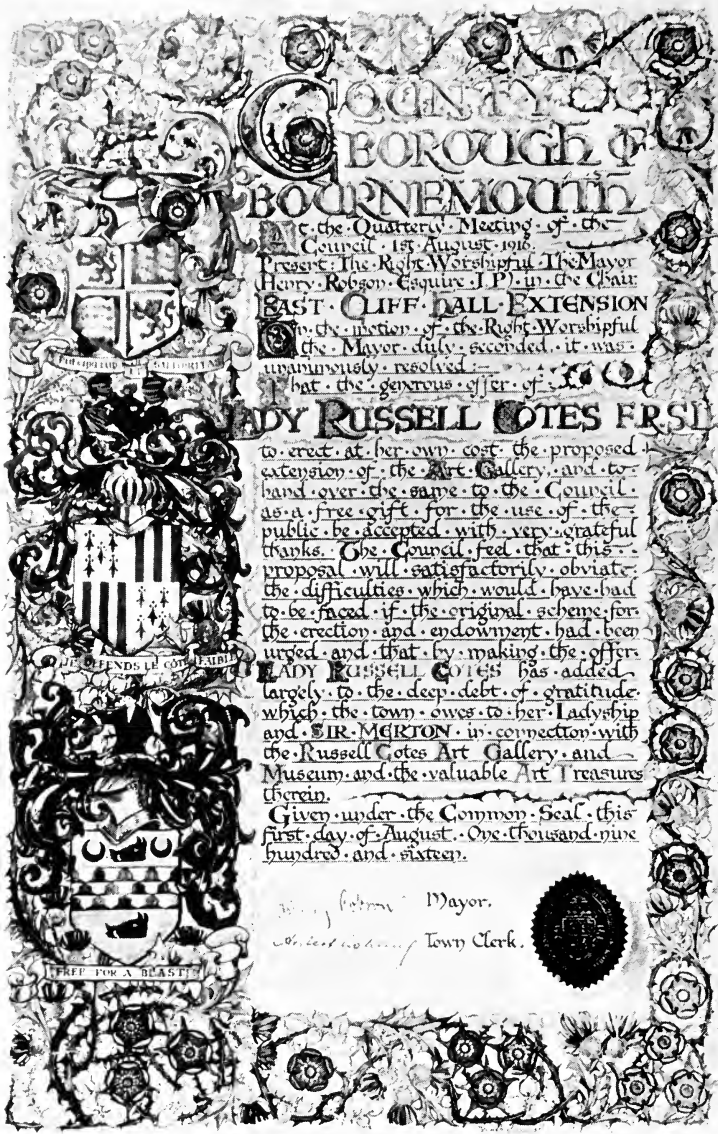 COUNTY
BOROUGH OF
BOURNEMOUTH
At·the·Quarterly·Meeting·of·the
Council·1st·August·1916·
Present·The·Right·Worshipful·The·Mayor
Henry·Robson·Esquire·J.P)·in·the·Chair
EAST·CLIFF·HALL·EXTENSION
On·the·motion·of·the·Right·Worshipful
the·Mayor·duly·seconded·it·was·
unanimously·resolved:—
That·the·generous·offer·of·
LADY RUSSELL COTES F.R.S.L
to·erect·at·her·own·cost·the·proposed
extension·of·the·Art·Gallery,·and·to·
hand·over·the·same·to·the·Council·
as·a·free·gift·for·the·use·of·the·
public·be·accepted·with·very·grateful
thanks.·The·Council·feel·that·this·
proposal·will·satisfactorily·obviate·
the·difficulties·which·would·have·had
to·be·faced·if·the·original·scheme·for·
the·erection·and·endowment·had·been
urged·and·that·by·making·the·offer·
LADY RUSSELL COTES has·added
largely·to·the·deep·debt·of·gratitude·
which·the·town·owes·to·her·Ladyship
and·SIR·MERTON·in·connection·with
the·Russell·Cotes·Art·Gallery·and·
Museum·and·the·valuable·Art·Treasures
therein.
Given·under·the·Common·Seal·this·
first·day·of·August·One·thousand·nine
hundred·and·sixteen.
Mayor.
Town Clerk.
PULCHRITUDO ET SALUBRITAS
JE DEFENDS LE COTE FAIBLE
FREE FOR A BLAST